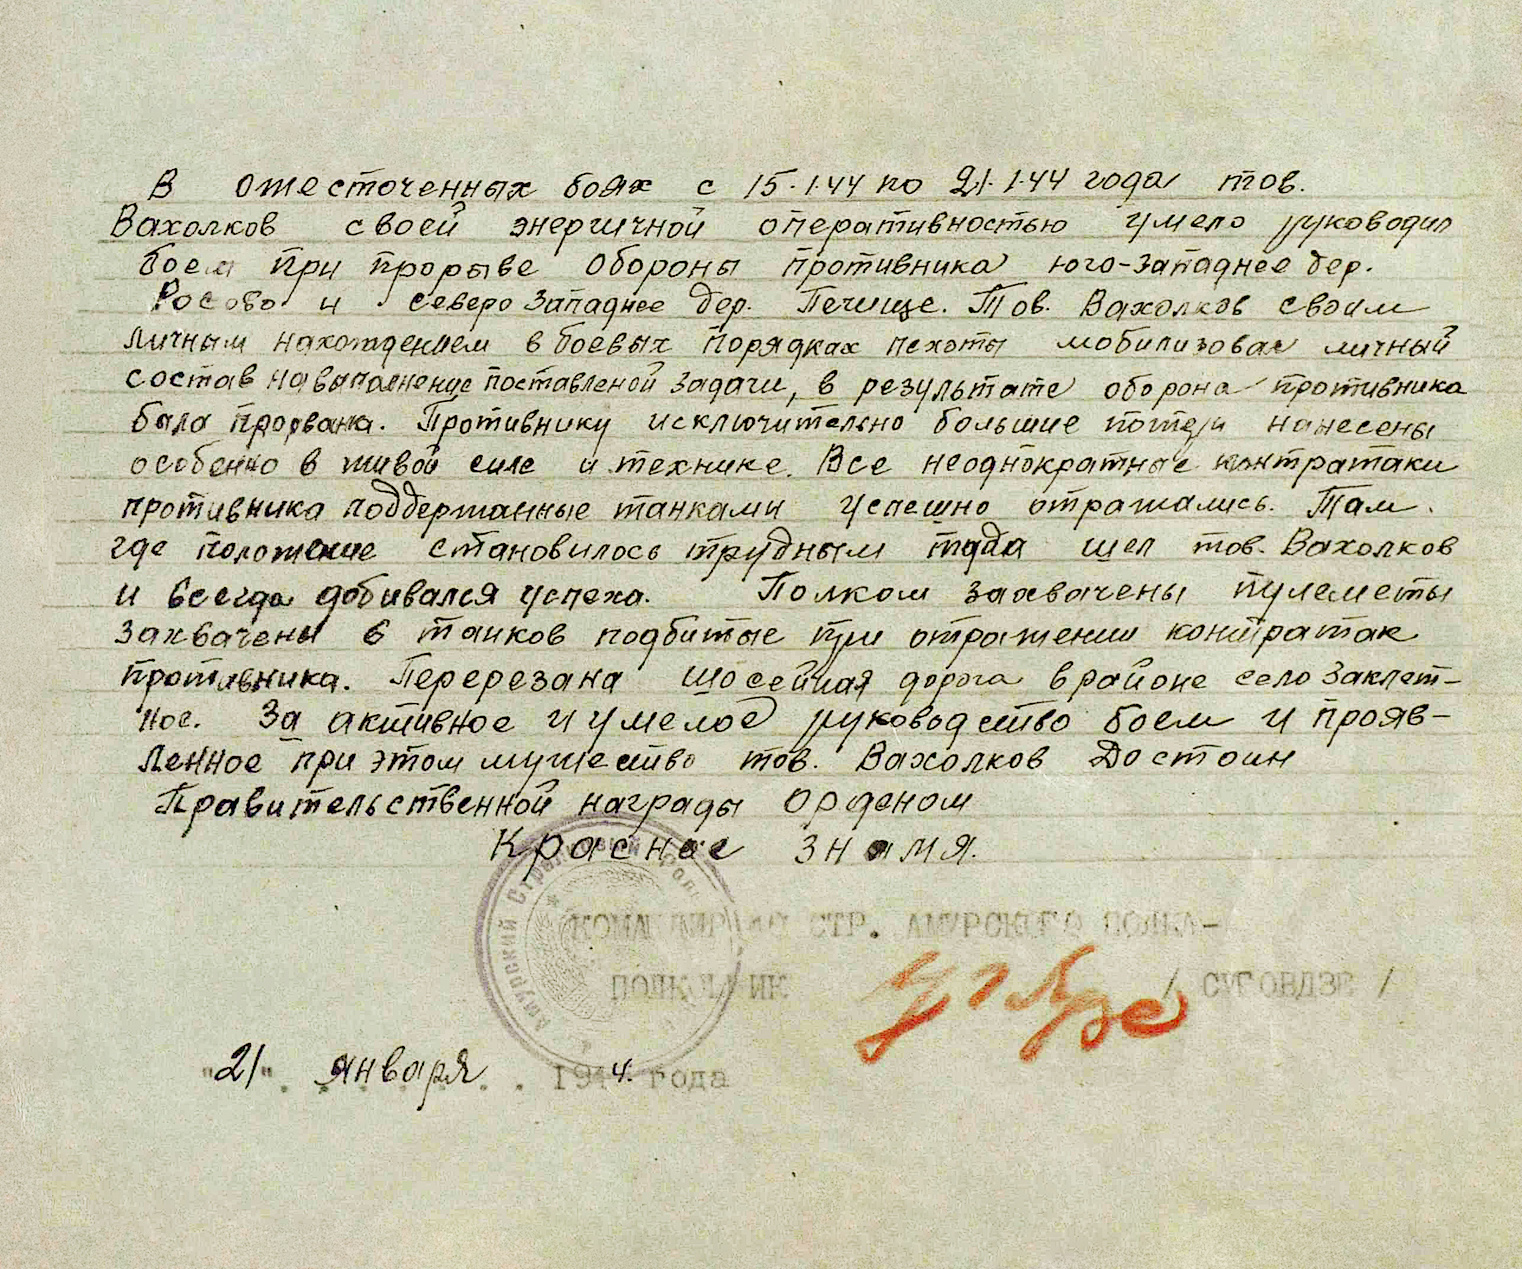 В ожесточенных боях с 15.1.44 по 21.1.44 года тов.
Вахолков своей энергичной оперативностью умело руководил
боем при прорыве обороны противника юго-западнее дер.
Росово и северо западнее дер. Печище. Тов. Вахолков своим
личным нахождением в боевых порядках пехоты мобилизовал личный
состав на выполнение поставленой задачи, в результате оборона противника
была прорвана. Противнику исключительно большие потери нанесены
особенно в живой силе и технике. Все неоднократные контратаки
противника поддержанные танками успешно отражались. Там
где положение становилось трудным туда шел тов. Вахолков
и всегда добивался успеха. Полком захвачены пулеметы
захвачены 6 танков подбитые при отражении контратак
противника. Перерезана шосейная дорога в районе село Заклет-
ное. За активное и умелое руководство боем и прояв-
ленное при этом мужество тов. Вахолков Достоин
Правительственной награды орденом
Красное знамя.
Амурский Стрелковый Полк
КОМАНДИР СТР. АМУРСКОГО ПОЛКА-
ПОЛКОВНИК / СУГОВДЗЕ /
"21" января 1944 года